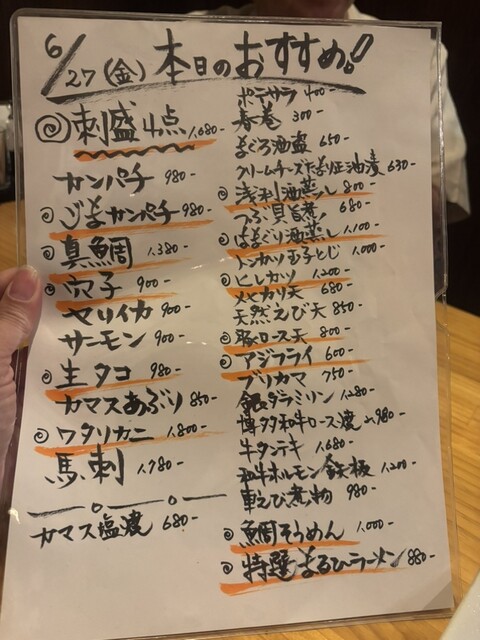 6/27(金) 本日のおすすめ!
◎刺盛4点 1,680-
カンパチ 980-
◎ごまカンパチ 980-
◎真鯛 1,380-
◎穴子 900-
ヤリイカ 900-
サーモン 900-
◎生タコ 980-
カマスあぶり 850-
◎ワタリカニ 1,800-
馬刺 1,780-
カマス塩焼 680-
ポテサラ 400-
春巻 300-
まぐろ酒盗 650-
クリームチーズ 630-
◎浅利酒蒸し 800-
つぶ貝旨煮 680-
◎はまぐり酒蒸し 1,100-
トンカツ玉子とじ 1,000-
◎ヒレカツ 1,200-
メヒカリ天 680-
天然えび天 850-
◎豚ロース天 800-
◎アジフライ 600-
ブリカマ 750-
銀ダラミリン 1,280-
博多和牛ロース焼
牛タンテキ 1,680-
和牛ホルモン鉄板 1,200-
車えび煮物 980-
◎鯛そうめん 1,000-
◎特選まるひラーメン 880-